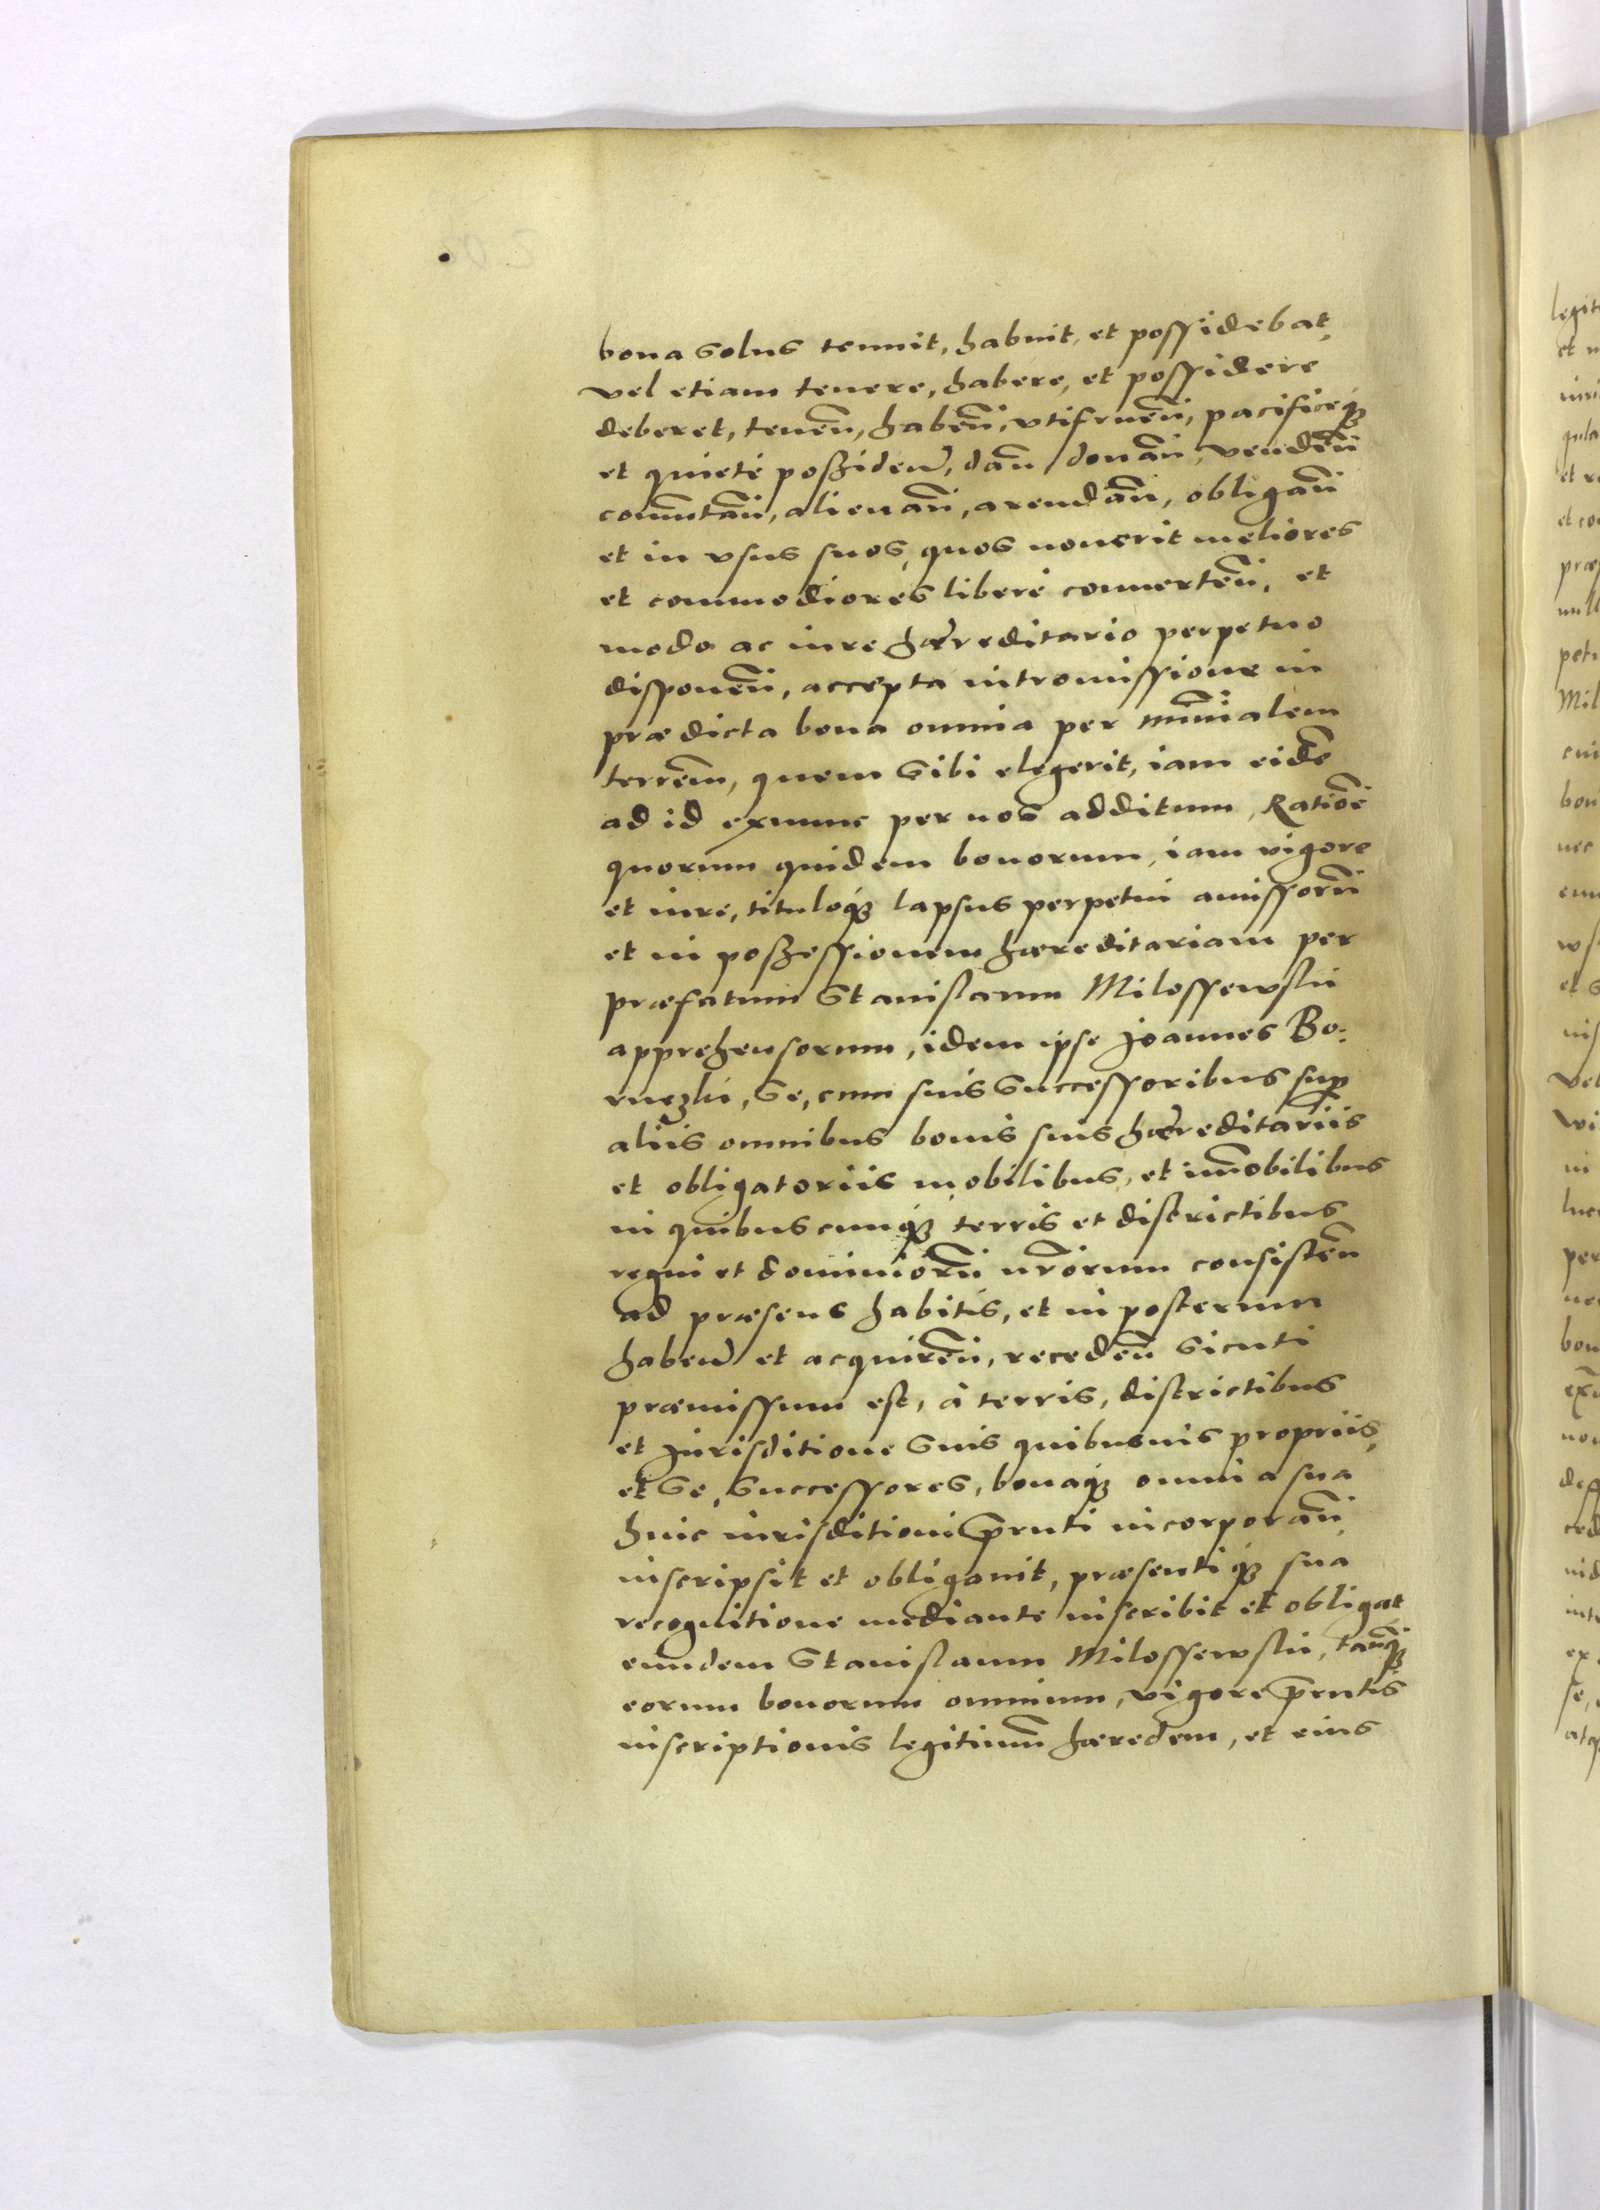 bona solus tenuit, habuit, et possidebat,
vel etiam tenere, habere, et possidere
deberet, teneñ, habeñ, vtifrueñ, pacificeq́ꝫ
et quietè possideñ, dañ donañ, vendeñ
com̃utañ, alienañ, arendañ, obligañ
et in vsus suos, quos nouerit meliores
et commodiores liberè conuerteñ, et
modo ac iure hæreditario perpetuo
disponeñ, accepta intromissione in
prædicta bona omnia per min̄ialem
terreñm, quem sibi elegerit, iam eidē
ad id exnunc per nos additum, Ratiōe
quorum quidem bonorum, iam vigore
et iure, tituloq́ꝫ lapsus perpetui amissorū
et in possessionem hæreditariam per
præfatum Stanislaum Milossewski
apprehensorum, idem ipse Joannes Bo:
ruczki, se, cum suis successoribus sup̲
aliis omnibus bonis suis hæreditariis
et obligatoriis mobilibus, et im̄obilibus
in quibuscunq́ꝫ terris et districtibus
regni et dominiorū nr̄orum consisteñ
ad præsens habitis, et in posterum
habeñ et acquireñ, recedeñ sicuti
præmissum est, à terris, districtibus
et Jurisditione suis quibusuis propriis,
et se, successores, bonaq́ꝫ omnia sua
huic iurisditioni p̄nti incorporañ
inscripsit et obligauit, præsentiq́ꝫ sua
recognitione mediante inscribit et obligat
eundem Stanislaum Milossewski, tanq̄ꝫ
eorum bonorum omnium, vigore p̄ntis
inscriptionis legitimū hæredem, et eius